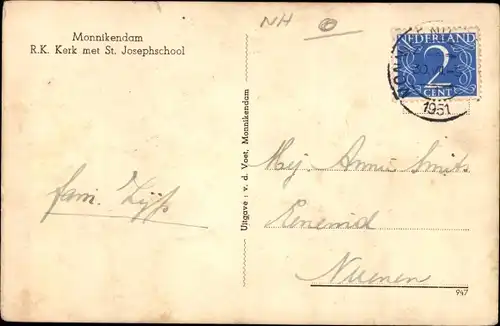 NH
Monnikendam
R.K. Kerk met St. Josephschool
NEDERLAND
2
CENT
1951
Uitgave : v. d. Voet, Monnikendam
Mej Annie Smits
fam. Zijp
Nuenen
947